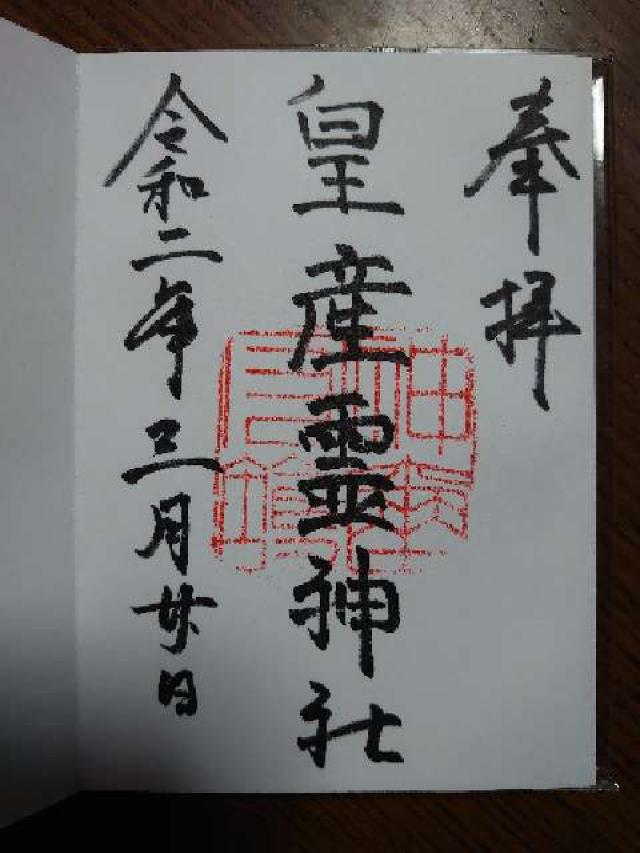 奉拝
皇産霊神社
令和二年三月廿日